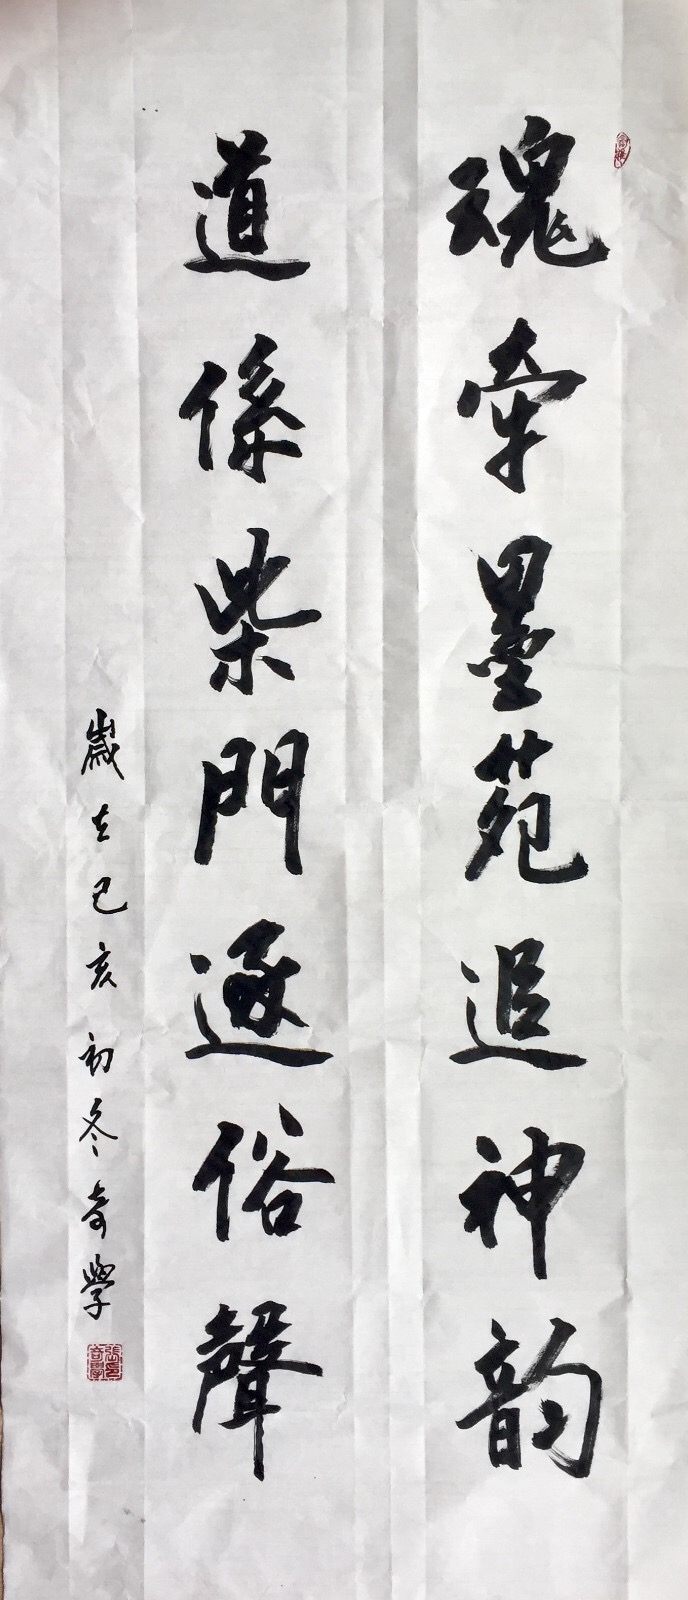 魂牵墨苑追神韵
道係柴門逐俗聲
歲在己亥初冬奇學